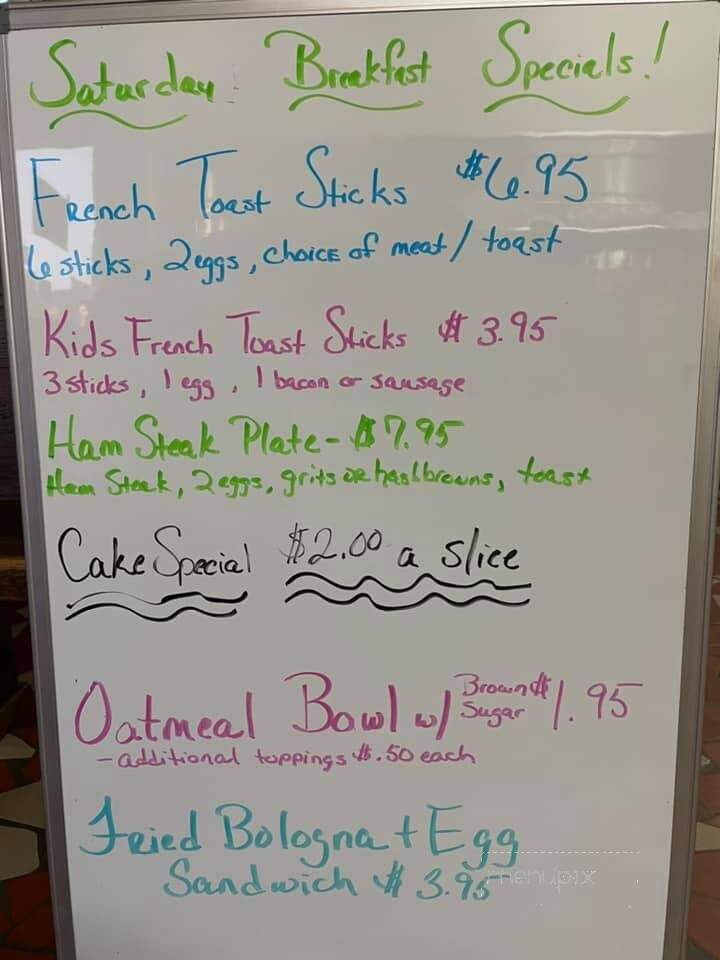 Saturday Breakfast Specials!
French Toast Sticks $6.95
6 sticks, 2 eggs, choice of meat/toast
Kids French Toast Sticks $3.95
3 sticks, 1 egg, 1 bacon or sausage
Ham Steak Plate - $7.95
Ham Steak, 2 eggs, grits or hashbrowns, toast
Cake Special $2.00 a slice
Oatmeal Bowl w/ Brown Sugar $1.95
- additional toppings $.50 each
Fried Bologna + Egg
Sandwich $3.95
menupix